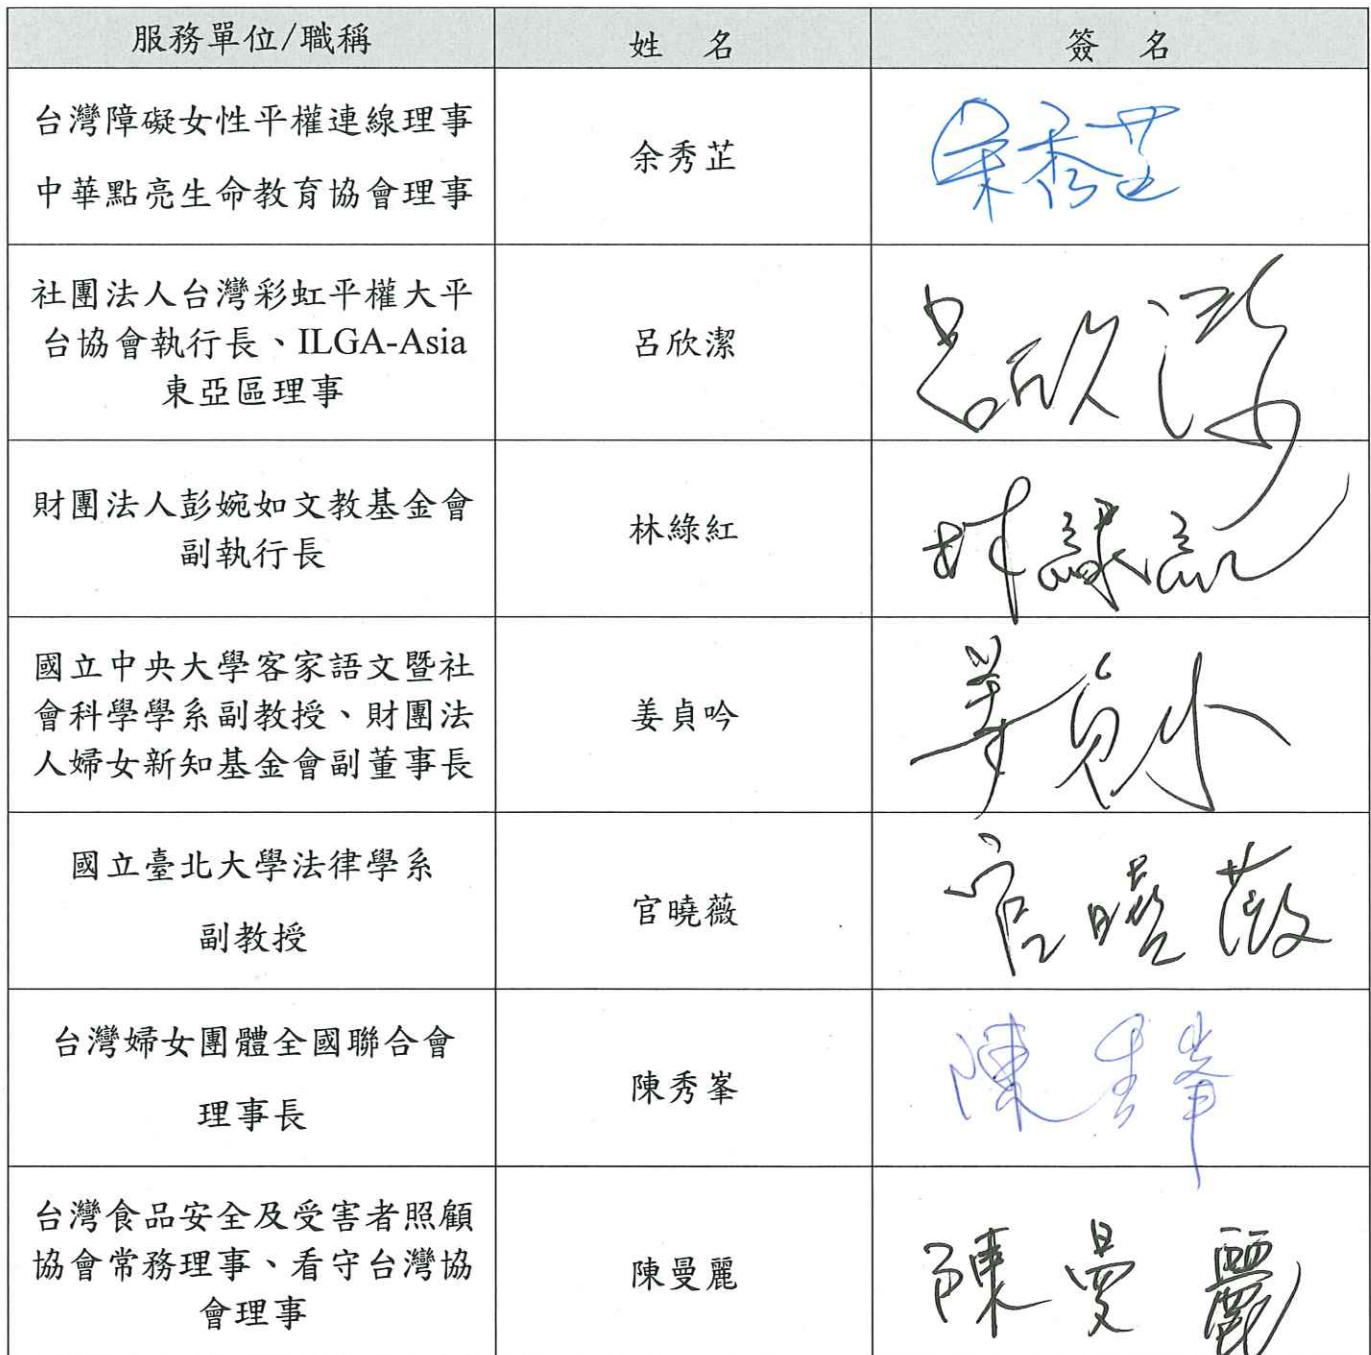 服務單位/職稱 姓 名 簽 名
台灣障礙女性平權連線理事
中華點亮生命教育協會理事
余秀芷
余秀芷
社團法人台灣彩虹平權大平
台協會執行長、ILGA-Asia
東亞區理事
呂欣潔
呂欣潔
財團法人彭婉如文教基金會
副執行長
林綠紅
林綠紅
國立中央大學客家語文暨社
會科學學系副教授、財團法
人婦女新知基金會副董事長
姜貞吟
國立臺北大學法律學系
副教授
官曉薇
官曉薇
台灣婦女團體全國聯合會
理事長
陳秀峯
陳秀峯
台灣食品安全及受害者照顧
協會常務理事、看守台灣協
會理事
陳曼麗
陳曼麗